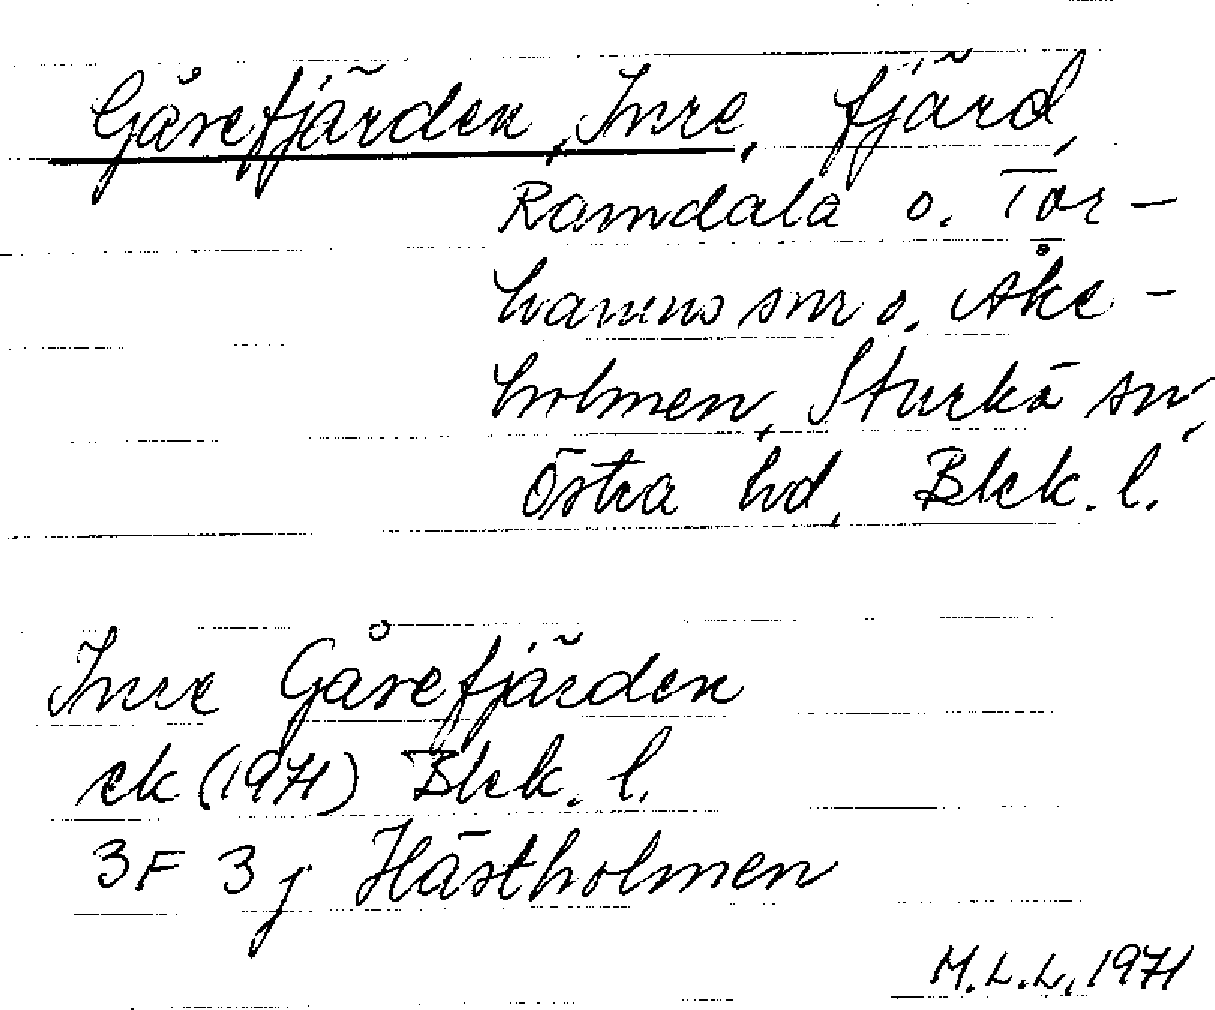 Gåsefjärden, Inre, fjärd,
Ramdala o. Tor-
hamns snr o. Åke-
holmen, Sturkö sn,
Östra hd, Blek. l.
Inre Gåsefjärden
ek (1971) Blek. l.
3F 3j Hästholmen
M.L.L. 1971